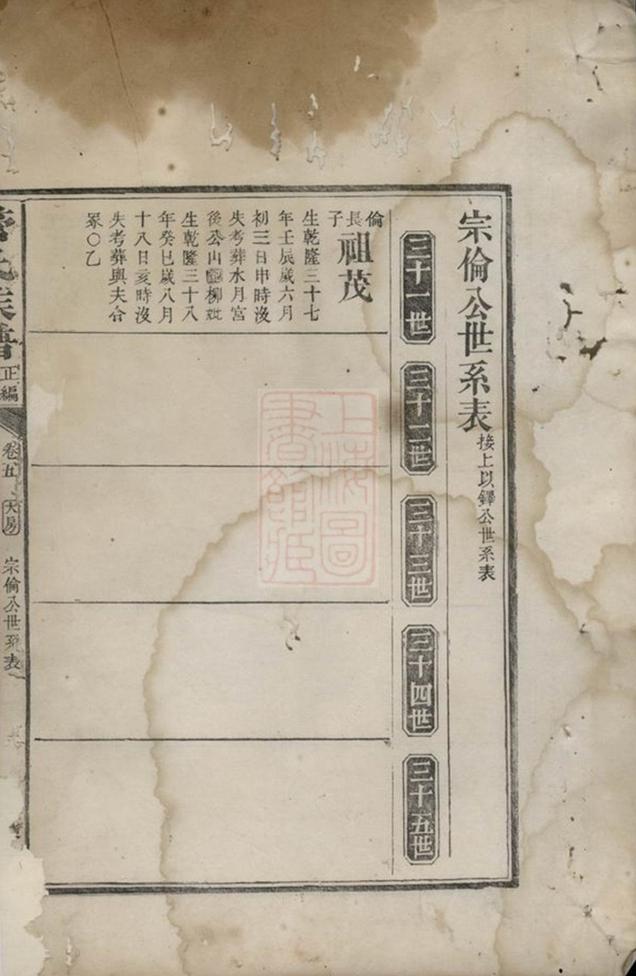 宗倫公世系表 接上以鐸公世系表
三十一世
三十二世
三十三世
三十四世
三十五世
倫長子 祖茂
生乾隆三十七
年壬辰歲六月
初三日申時沒
失考葬水月宮
後公山 柳妣
生乾隆三十八
年癸巳歲八月
十八日亥時沒
失考葬與夫合
冢〇乙
氏族譜 正編 卷五 宗倫公世系表
上海圖書館藏